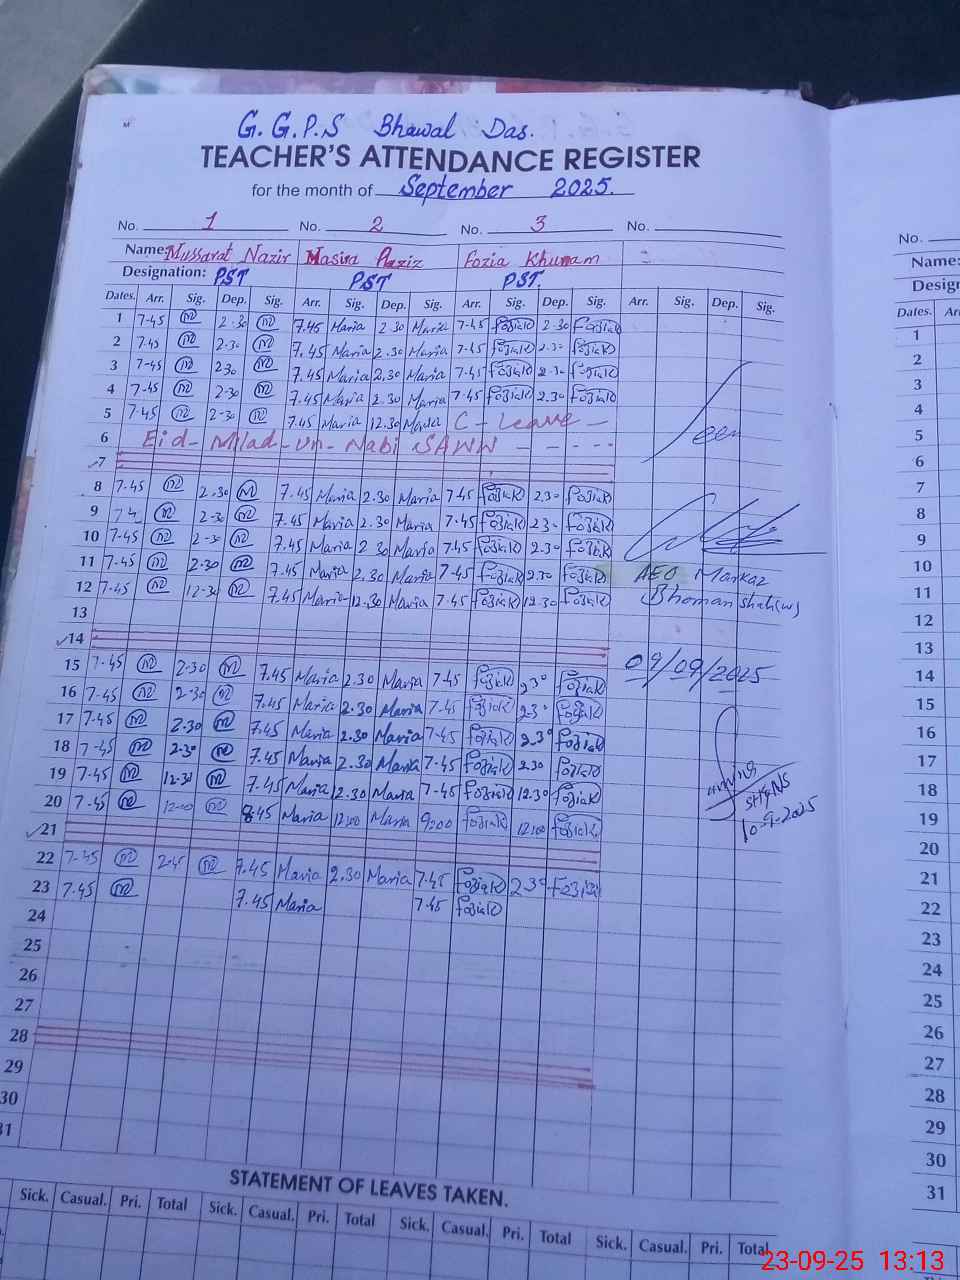 G.G.P.S Bhawal Das.
TEACHER'S ATTENDANCE REGISTER
for the month of September 2025.
No. 1 No. 2 No. 3 No.
Name: Mussarat Nazir Fozia Khurram
Designation: PST PST PST.
Dates. Arr. Sig. Dep. Sig. Arr. Sig. Dep. Sig. Arr. Sig. Dep. Sig. Arr. Sig. Dep. Sig.
1 7-45 m 2-30 m 7.45 Maria 2 30 Maria 7-45 FoziaK 2 30 FoziaK
2 7-45 m 2-30 m 7.45 Maria 2.30 Maria 7-45 FoziaK 2-30 FoziaK
3 7-45 m 2 30 m 7.45 Maria 2.30 Maria 7.45 FoziaK 2-30 FoziaK
4 7-45 m 2-30 m 7.45 Maria 2.30 Maria 7-45 FoziaK 2.30 FoziaK
5 7-45 m 2-30 m 7.45 Maria 12.30 Maria C - Leave -
Seen
6 Eid-Milad-un-Nabi SAWW - - - - -
7
8 7-45 m 2.30 m 7.45 Maria 2.30 Maria 7 45 FoziaK 2.30 FoziaK
9 m 2-30 m 7.45 Maria 2.30 Maria 7.45 FoziaK 2 30 FoziaK
10 7-45 m 2-30 m 7.45 Maria 2 30 Maria 7.45 FoziaK 2.30 FoziaK
11 7-45 m 2.30 m 7.45 Maria 2.30 Maria 7-45 FoziaK 2.30 FoziaK
AEO Markaz
12 7-45 m 12-30 m 7.45 Maria 12.30 Maria 7-45 FoziaK 12.30 FoziaK
Bhoman Shah(w)
13
14
09/09/2025
15 7-45 m 2.30 m 7.45 Maria 2.30 Maria 7-45 FoziaK 2 30 FoziaK
16 7-45 m 2-30 m 7.45 Maria 2.30 Maria 7-45 FoziaK 2.30 FoziaK
17 7-45 m 2.30 m 7.45 Maria 2.30 Maria 7-45 FoziaK 2.30 FoziaK
18 7-45 m 2-30 m 7.45 Maria 2.30 Maria 7-45 FoziaK 2.30 FoziaK
19 7-45 m 12-30 m 7.45 Maria 12.30 Maria 7-45 FoziaK 12.30 FoziaK
20 7-45 m 12-00 m 8.45 Maria 12:00 Maria 9:00 FoziaK 12:00 FoziaK
10-9-2025
21
22 7-45 m 2-45 m 7.45 Maria 2.30 Maria 7.45 FoziaK 2.30 FoziaK
23 7.45 m 7.45 Maria 7.45 FoziaK
24
25
26
27
28
29
30
31
STATEMENT OF LEAVES TAKEN.
Sick. Casual. Pri. Total Sick. Casual. Pri. Total Sick. Casual. Pri. Total Sick. Casual. Pri. Total
No.
Name:
Dates.
1
2
3
4
5
6
7
8
9
10
11
12
13
14
15
16
17
18
19
20
21
22
23
24
25
26
27
28
29
30
31
23-09-25 13:13